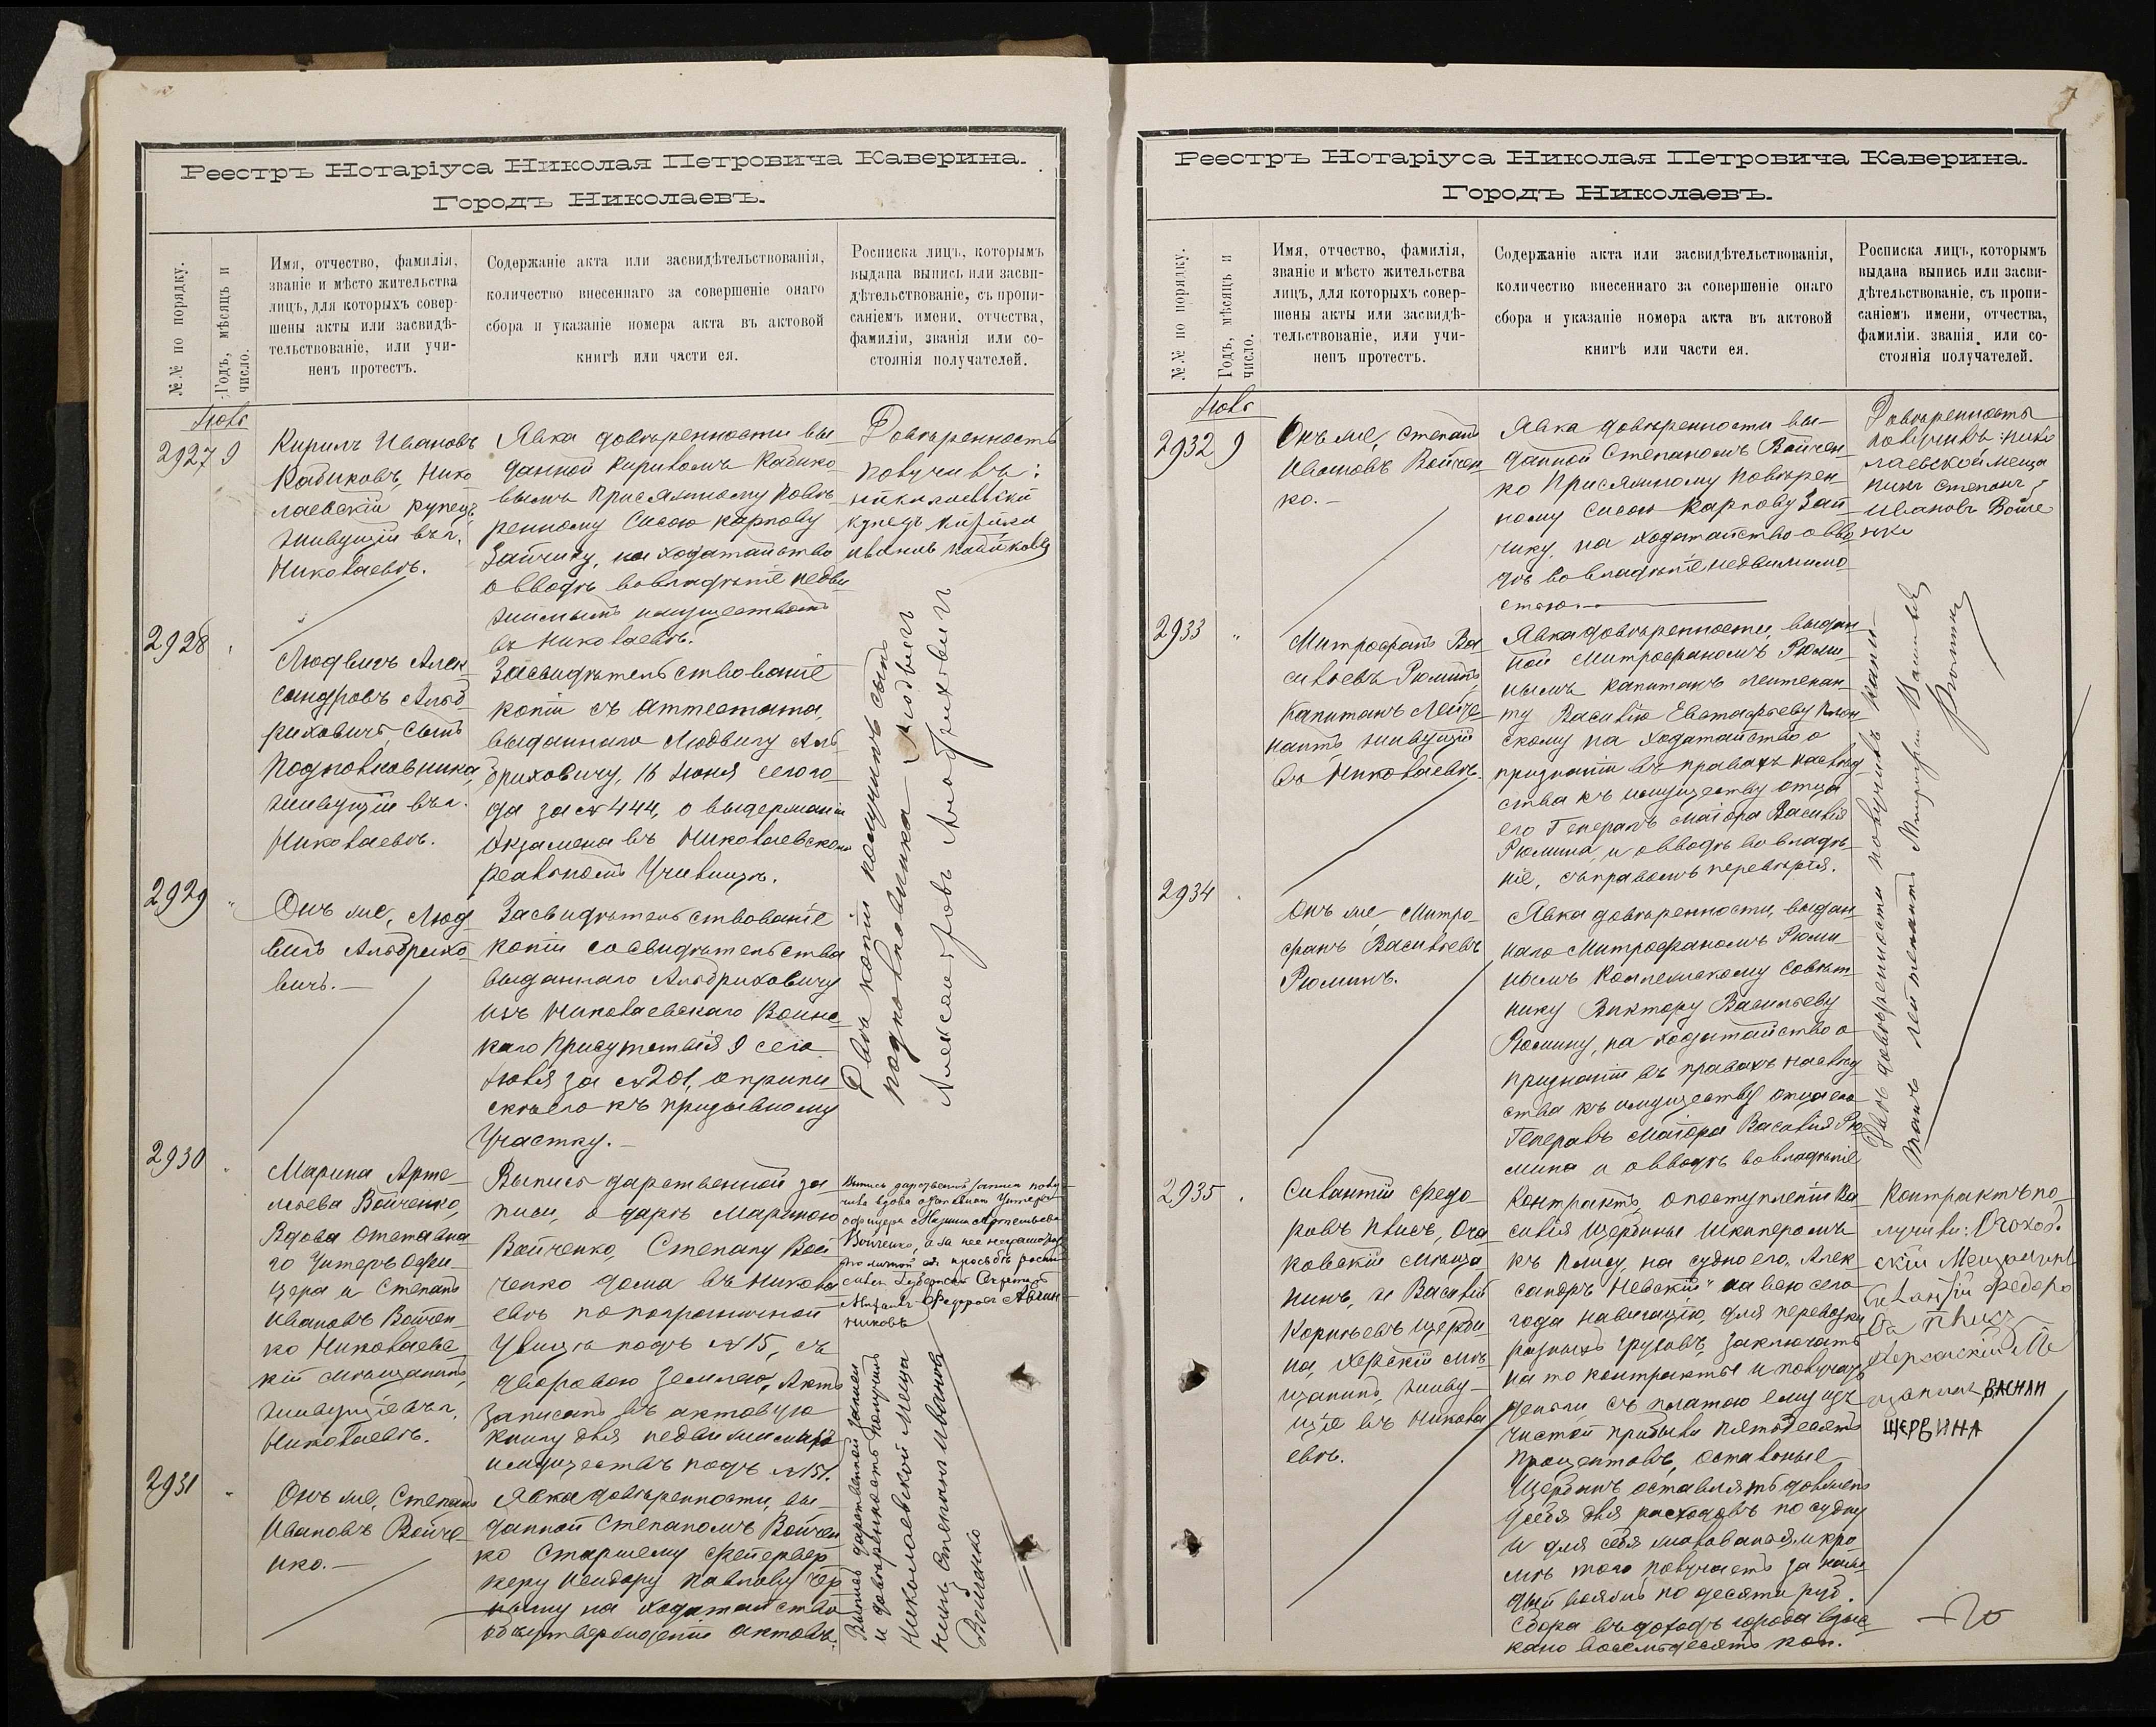 Реестръ Нотаріуса Николая Петровича Каверина.
Городъ Николаевъ.
№№ по порядку.
Годъ, мѣсяцъ и
число.
Имя, отчество, фамилія,
званіе и мѣсто жительства
лицъ, для которыхъ совер-
шены акты или засвидѣ-
тельствованіе, или учи-
ненъ протестъ.
Содержаніе акта или засвидѣтельствованія,
количество внесеннаго за совершеніе онаго
сбора и указаніе номера акта въ актовой
книгѣ или части ея.
Росписка лицъ, которымъ
выдана выпись или засви-
дѣтельствованіе, съ пропи-
саніемъ имени, отчества,
фамиліи, званія или со-
стоянія получателей.
Іюль
2927 9
Кирилъ Ивановъ
Кабиковъ, Нико
лаевскій купецъ
живущій въ г.
Николаевѣ.
Явка довѣренности вы-
данной Кириломъ Кабико
вымъ Присяжному Повѣ
ренному Сисою Карпову
Зайчику, на ходатайство
о вводѣ во владѣніе недви
жимымъ имуществомъ
въ Николаевѣ.
Довѣренность
получилъ:
николаевскій
купецъ Кирила
Ивановъ
2928 "
Людвигъ Алек
сандровъ Альб
риховичъ, сынъ
Подполковника,
живущій въ г.
Николаевѣ.
Засвидѣтельствованіе
копіи съ аттестата,
выданнаго Людвигу Аль
бриховичу, 16 Іюня сего го
да за № 444, о выдержаніи
экзамена въ Николаевскомъ
реальномъ Училищѣ.
2929 "
Онъ же, Люд
вигъ Альбрихо
вичъ.—
Засвидѣтельствованіе
копіи со свидѣтельства
выданнаго Альбриховичу
изъ Николаевскаго Воинс
каго Присутствія 9 сего
Іюля за № 201, о припи
скѣ его къ призывному
Участку.—
Двѣ копіи получилъ сынъ
подполковника Людвигъ
Александровъ Альбриховичъ
2930 "
Марина Арте-
мьева Войченко,
Вдова Отставна
го Унтеръ Офи
цера и Степанъ
Ивановъ Войчен
ко Николаевс
кій мѣщанинъ,
живущіе въ г.
Николаевѣ.
Выпись дарственной за
писи, о дарѣ Мариною
Войченко, Степану Вой
ченко дома въ Никола
евѣ по пограничной
Улицѣ подъ № 15, съ
дворовою землею, Актъ
записанъ въ актовую
книгу для недвижимыхъ
имуществъ подъ № 151.
Выпись дарственной записи полу-
чила вдова отставнаго Унтеръ-
офицера Марина Артемьева
Войченко, а за нее неграмотную
по личной ея просьбѣ роспи
сался Губернскій Секретарь
Михаилъ Федоровъ
2931 "
Онъ же, Степанъ
Ивановъ Войче
нко.—
Явка довѣренности, вы-
данной Степаномъ Войчен
ко Старшему Фейервер
керу Исидору Павлову Чер
ному на ходатайство
объ утвержденіи актовъ.
Выпись дарственной записи
и довѣренность получилъ
Николаевской Меща
нинъ Степанъ Ивановъ
Войченко
7
Реестръ Нотаріуса Николая Петровича Каверина.
Городъ Николаевъ.
№№ по порядку.
Годъ, мѣсяцъ и
число.
Имя, отчество, фамилія,
званіе и мѣсто жительства
лицъ, для которыхъ совер-
шены акты или засвидѣ-
тельствованіе, или учи-
ненъ протестъ.
Содержаніе акта или засвидѣтельствованія,
количество внесеннаго за совершеніе онаго
сбора и указаніе номера акта въ актовой
книгѣ или части ея.
Росписка лицъ, которымъ
выдана выпись или засви-
дѣтельствованіе, съ пропи-
саніемъ имени, отчества,
фамиліи. званія или со-
стоянія получателей.
Іюль
2932 9
Онъ же, Степанъ
Ивановъ Войчен
ко.—
Явка довѣренности вы-
данной Степаномъ Войчен
ко Присяжному Повѣрен
ному Сисою Карпову Зай
чику, на ходатайство о вво
дѣ во владѣніе недвижимо
стью.
Довѣренность
получилъ: нико
лаевской меща
нинъ Степанъ
Ивановъ Войче
нко
2933 "
Митрофанъ Ва
сильевъ Рюминъ,
Капитанъ Лейте
нантъ живущій
въ Николаевѣ.
Явка довѣренности, выдан
ной Митрофаномъ Рюми-
нымъ Капитанъ Лейтенан-
ту Василію Евстафьеву
скому на ходатайство о
признаніи въ правахъ наслѣд
ства къ имуществу отца
его Генералъ Маіора Василія
Рюмина, и о вводѣ во владѣ-
ніе, съ правомъ перевѣрія.
2934 "
Онъ же Митро
фанъ Васильевъ
Рюминъ.
Явка довѣренности, выдан
наго Митрофаномъ Рюми-
нымъ Коллежскому Совѣт
нику Виктору Васильеву
Рюмину, на ходатайство о
признаніи въ правахъ наслѣд
ства къ имуществу отца его
Генералъ Маіора Василія Рю
мина и о вводѣ во владѣніе
Двѣ довѣренности получилъ Капи-
танъ Лейтенантъ Митрофанъ Васильевъ
Рюминъ
2935 "
Силантій Федо
ровъ Пѣисъ, Оча
ковскій мѣща
нинъ, и Василій
Корнѣевъ Щерби
на, Херскій мѣ
щанинъ, живу-
щіе въ Никола
евѣ.
Контрактъ, о поступленіи Ва
силія Щербины Шкиперомъ
къ Пѣису, на судно его „Алек
сандръ Невскій" на всю сего
года навигацію, для перевозки
разныхъ грузовъ, заключать
на то контракты и получать
деньги съ платою ему изъ
чистой прибыли пятьдесятъ
процентовъ, остальные
Щербинъ оставляетъ
у себя для расходовъ по судну
и для себя жалованья, и кро
мѣ того получаетъ за каж
дый вояжъ по десяти руб.
Сбора въ доходъ города взыс
кано восемьдесятъ коп.
Контрактъ по
лучили: Очаков
скій Мещанинъ
Силантій Федоро
въ Пѣисъ
Херсонскій Ме
щанинъ ВАСИЛИ
ЩЕРБИНА